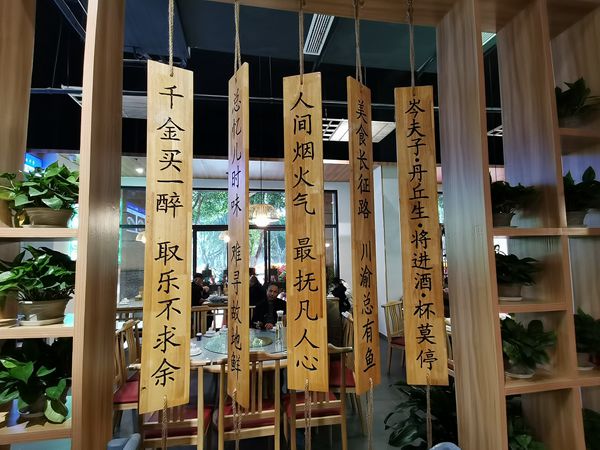 千金买一醉 取乐不求余
总忆儿时味 难寻故地鲜
人间烟火气 最抚凡人心
美食长征路 川渝总有鱼
岑夫子·丹丘生·将进酒·杯莫停